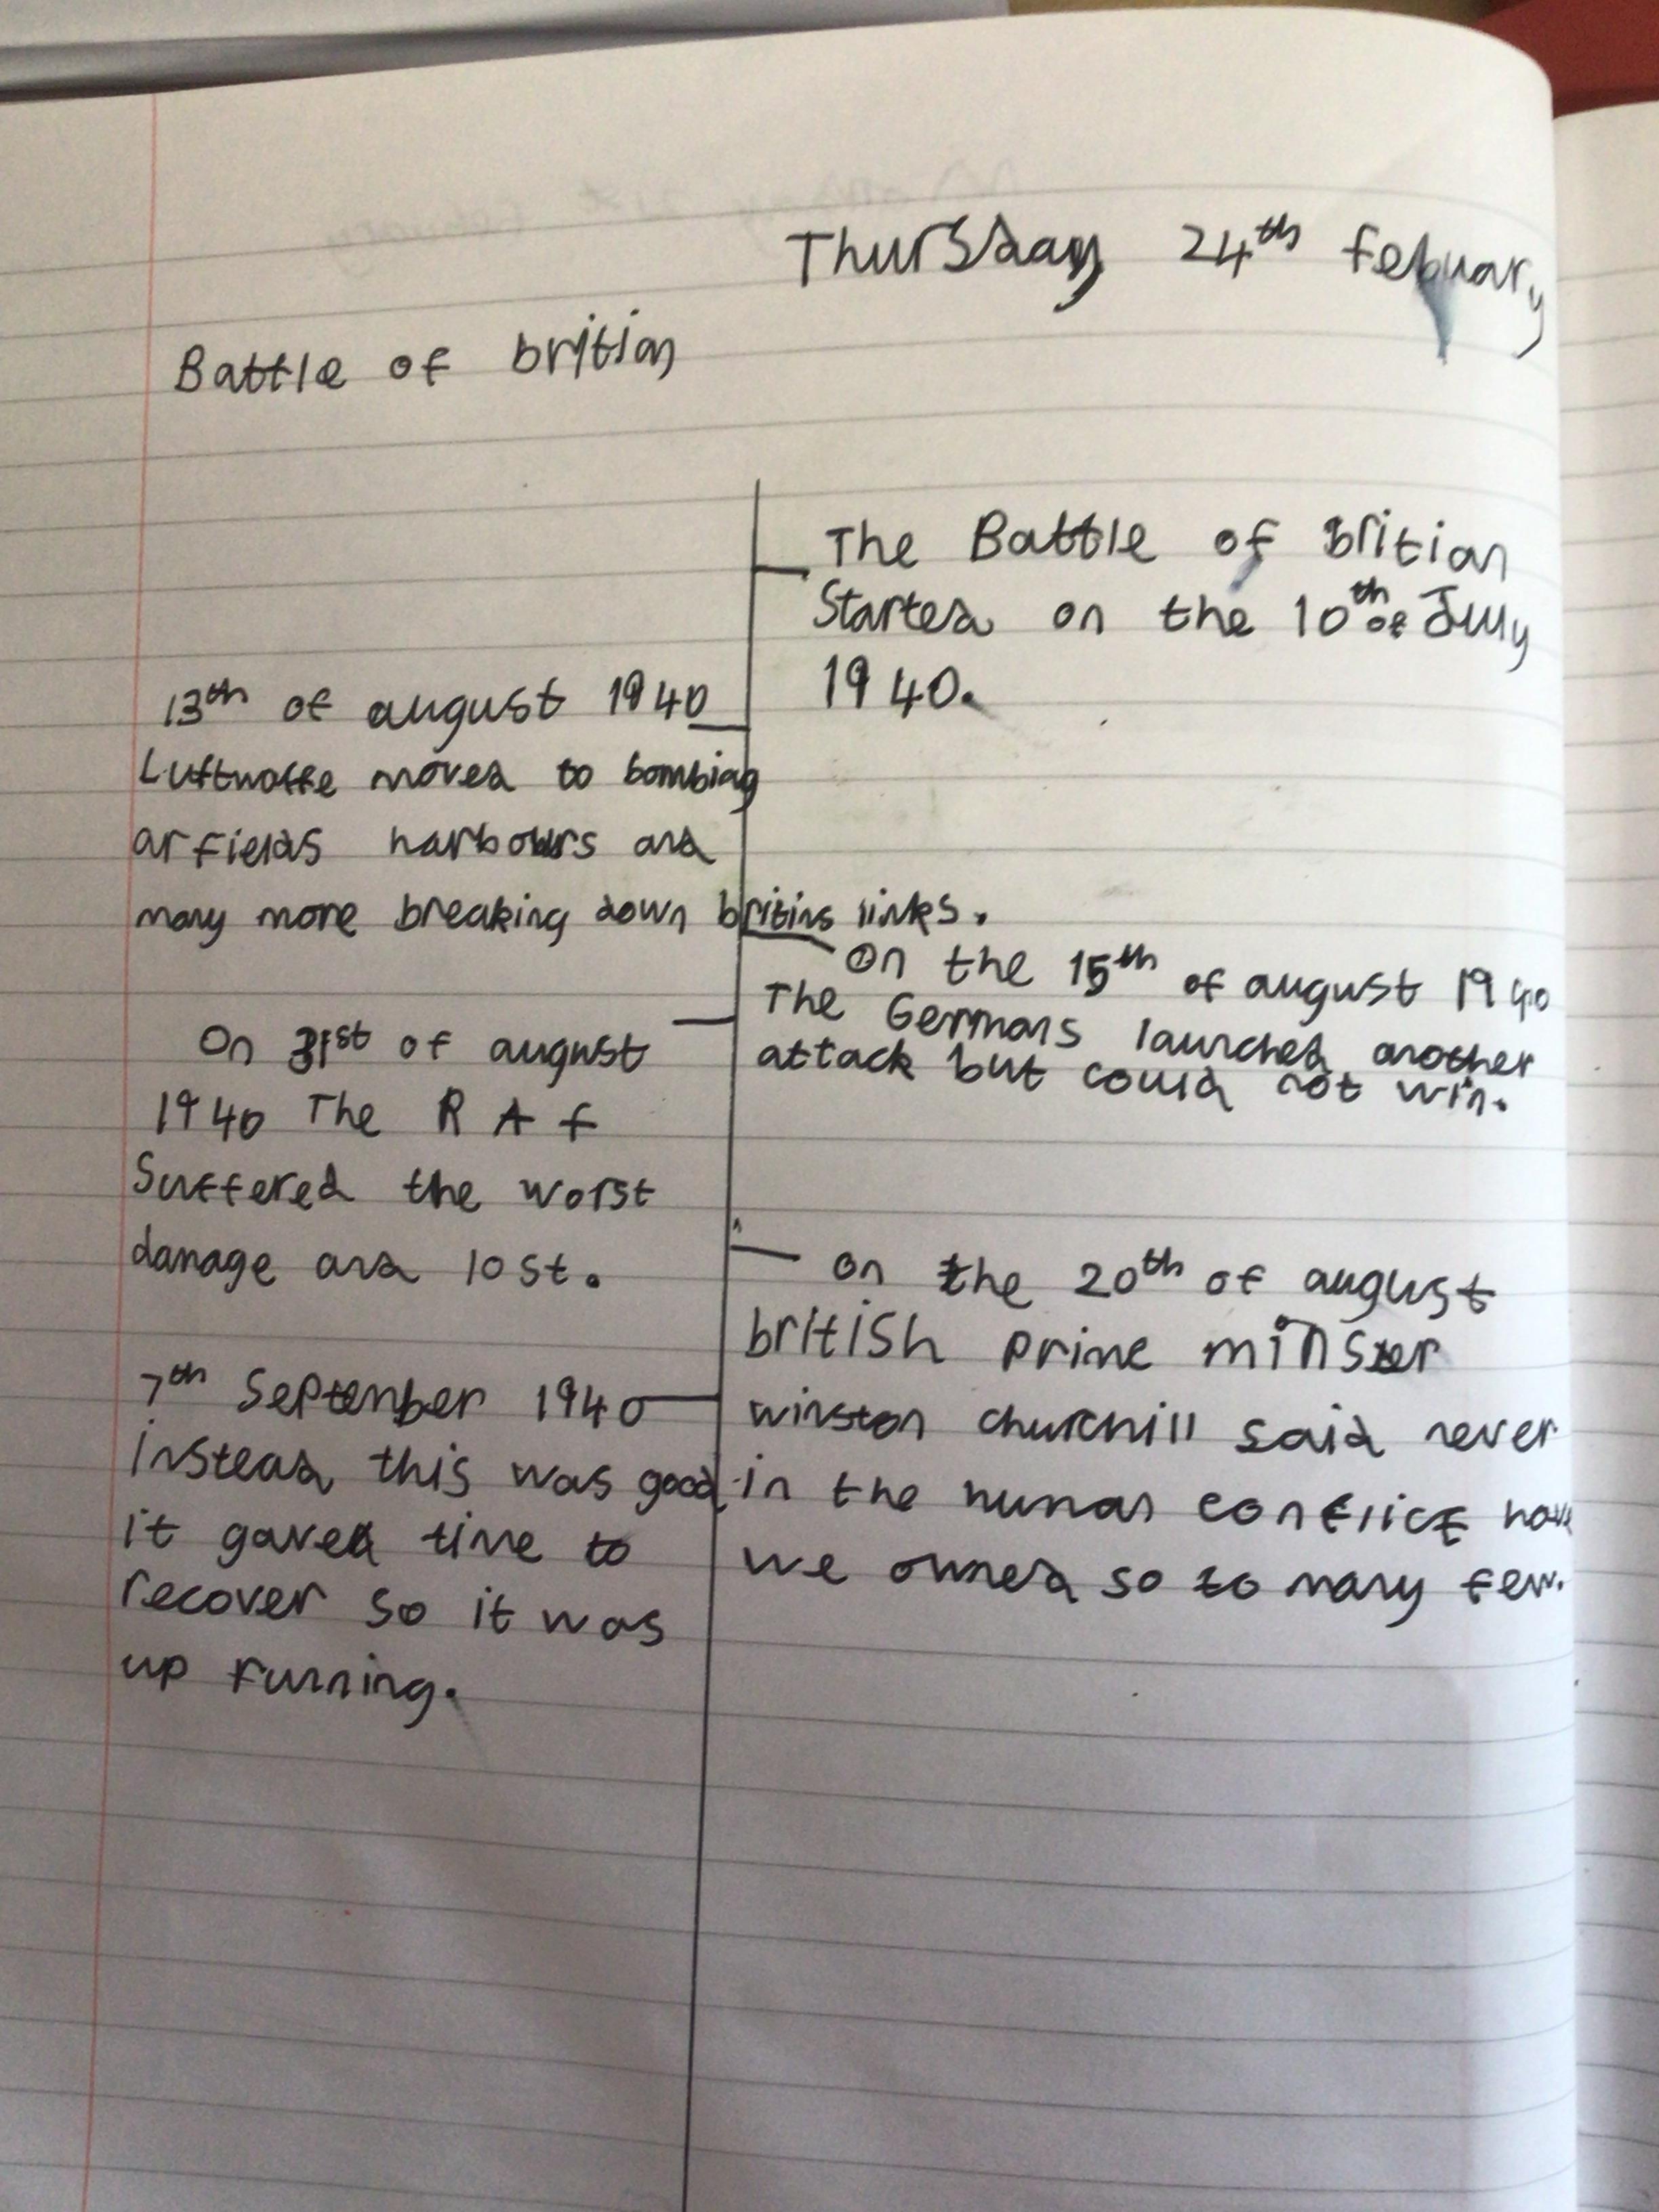 Thursday 24th febuary
Battle of britian
The Battle of Britian
Started on the 10th of July
1940.
13th of august 1940
Luftwaffe moved to bombing
arfields harbours and
many more breaking down britins links.
On the 15th of august 1940
The Germans launched another
attack but could not win.
On 31st of august
1940 The RAf
Suffered the worst
damage and lost.
on the 20th of august
british prime minster
winston churchill said never
in the human conflict have
we owned so to many few.
7th September 1940
instead this was good
it gaved time to
recover so it was
up running.